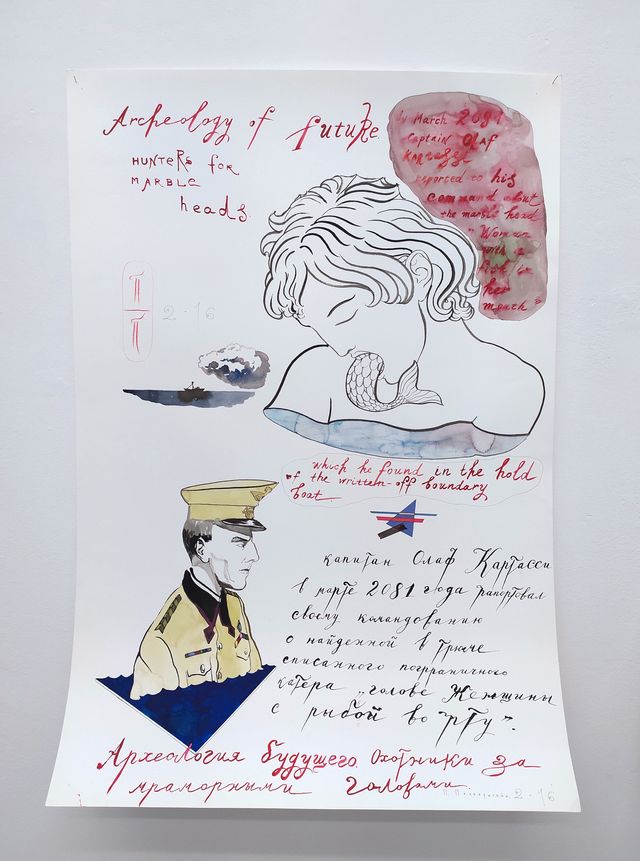 Archeology of future
HUNTERS for
MARBLE
heads
In March 2081
Captain Olaf
reported to his
command about
the marble head
"Woman
with a
fish in
her
mouth"
П
Т
2-16
which he found in the hold
of the written-off boundary
boat
капитан Олаф Картасси
в марте 2081 года рапортовал
своему командованию
о найденной в трюме
списанного пограничного
катера „голове Женщины
с рыбой во рту".
Археология будущего Охотники за
мраморными головами.
2-16